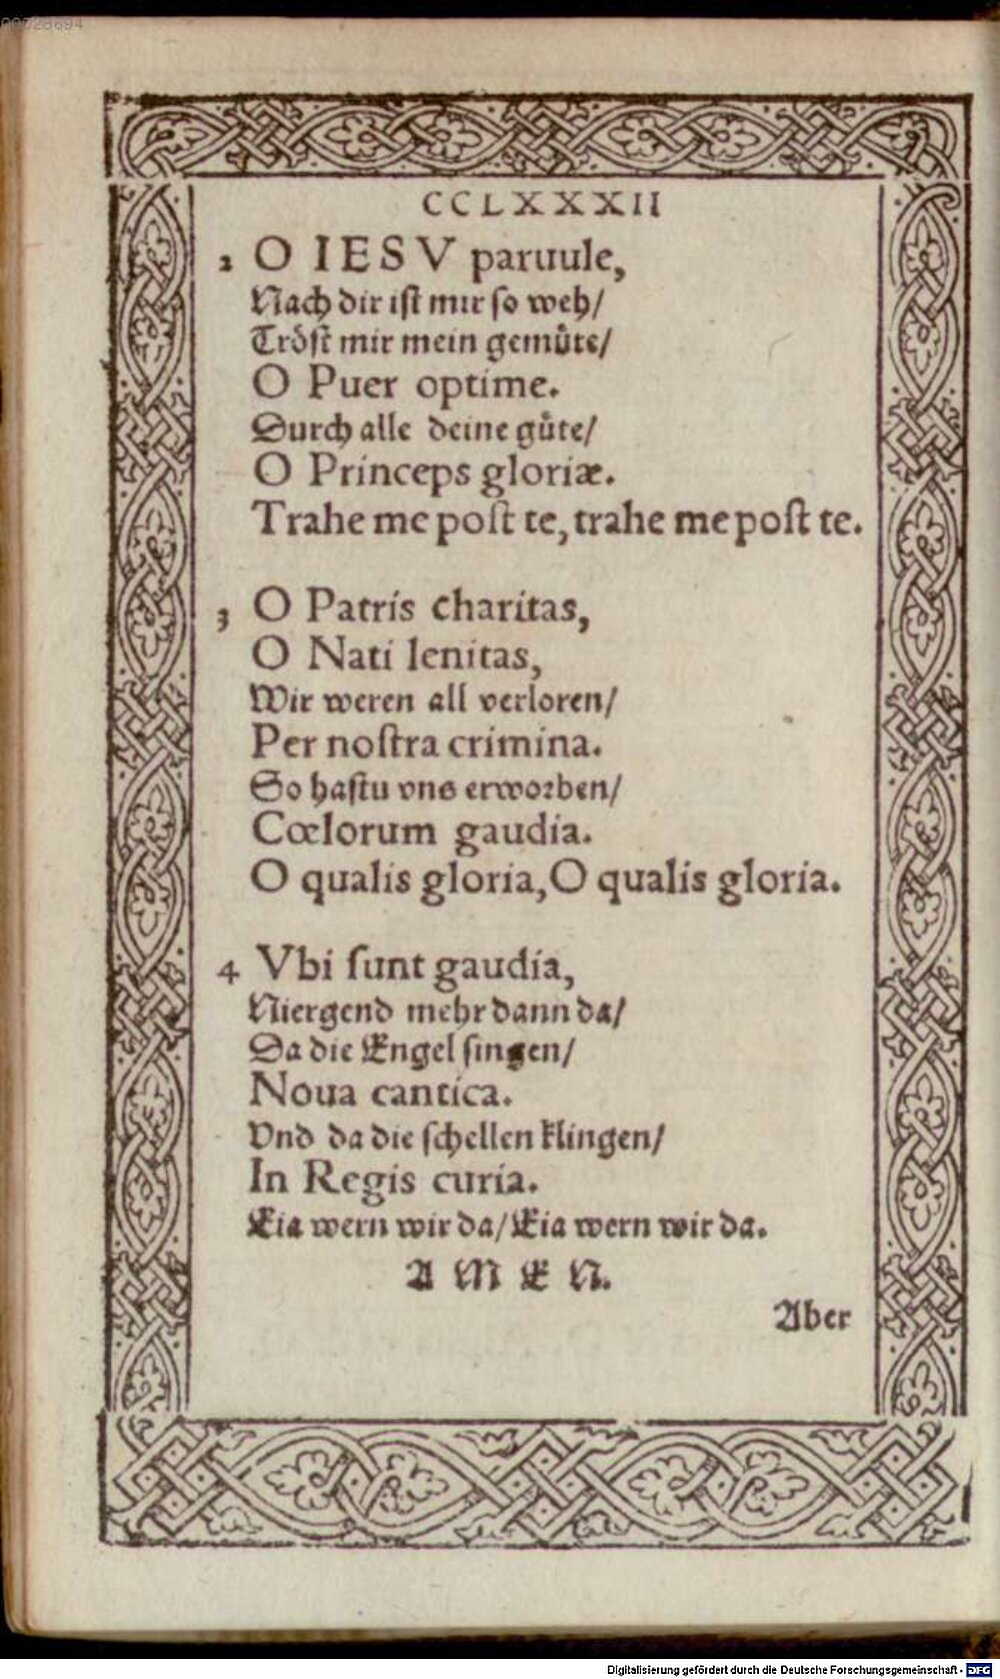 00728694
CCLXXXII
2 O IESV paruule,
Nach dir iſt mir ſo weh/
Tröſt mir mein gemuͤte/
O Puer optime.
Durch alle deine guͤte/
O Princeps gloriæ.
Trahe me poſt te, trahe me poſt te.
3 O Patris charitas,
O Nati lenitas,
Wir weren all verloren/
Per noſtra crimina.
So haſtu vns erworben/
Cœlorum gaudia.
O qualis gloria, O qualis gloria.
4 Vbi ſunt gaudia,
Niergend mehr dann da/
Da die Engel ſingen/
Noua cantica.
Vnd da die ſchellen klingen/
In Regis curia.
Eia wern wir da/ Eia wern wir da.
A M E N.
Aber
Digitalisierung gefördert durch die Deutsche Forschungsgemeinschaft - DFG